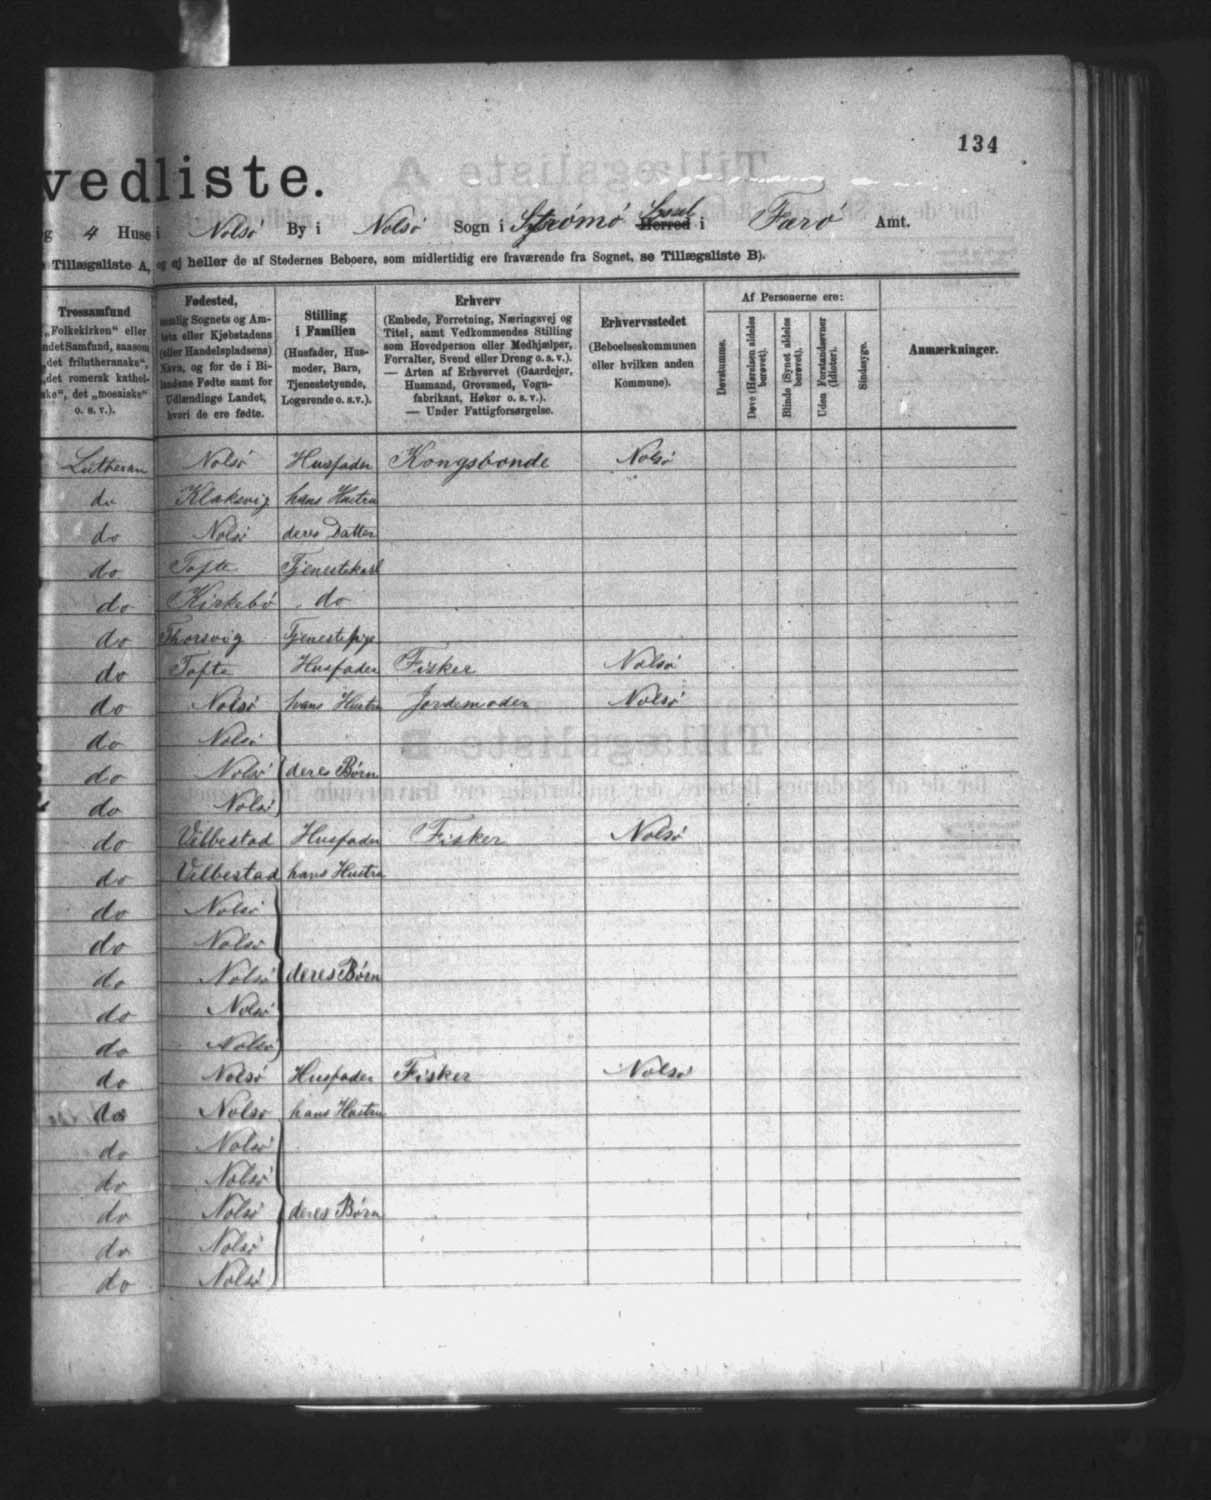 134
vedliste.
g 4 Huse i Nolsö By i Nolsö Sogn i Strömö Syssel Herred i Farö Amt.
Tillægsliste A, og ej heller de af Stedernes Beboere, som midlertidig ere fraværende fra Sognet, se Tillægsliste B).
Trossamfund
„Folkekirken" eller
ndet Samfund, saasom
„det frilutheranske",
„det romersk kathol-
ske", det „mosaiske"
o. s. v.).
Fødested,
nemlig Sognets og Am-
tets eller Kjøbstadens
(eller Handelspladsens)
Navn, og for de i Bi-
landene Fødte samt for
Udlændinge Landet,
hvori de ere fødte.
Stilling
i Familien
(Husfader, Hus-
moder, Barn,
Tjenestetyende,
Logerende o. s. v.).
Erhverv
(Embede, Forretning, Næringsvej og
Titel, samt Vedkommendes Stilling
som Hovedperson eller Medhjælper,
Forvalter, Svend eller Dreng o. s. v.).
— Arten af Erhvervet (Gaardejer,
Husmand, Grovsmed, Vogn-
fabrikant, Høker o. s. v.).
— Under Fattigforsørgelse.
Erhvervsstedet
(Beboelseskommunen
eller hvilken anden
Kommune).
Af Personerne ere:
Døvstumme.
Døve (Hørelsen aldeles
berøvet).
Blinde (Synet aldeles
berøvet).
Uden Forstandsevner
(Idioter).
Sindssyge.
Anmærkninger.
Lutheran Nolsö Husfader Kongsbonde Nolsö
do Klaksvig hans Hustru
do Nolsö deres Datter
do Tofte Tjenestekarl
do Kirkebö do
do Thorsvig Tjenestepige
do Tofte Husfader Fisker Nolsö
do Nolsö hans Hustru Jordemoder Nolsö
do Nolsö
do Nolsö deres Børn
do Nolsö
do Velbestad Husfader Fisker Nolsö
do Velbestad hans Hustru
do Nolsö
do Nolsö
do Nolsö deres Børn
do Nolsö
do Nolsö
do Nolsö Husfader Fisker Nolsö
do Nolsö hans Hustru
do Nolsö
do Nolsö
do Nolsö deres Børn
do Nolsö
do Nolsö